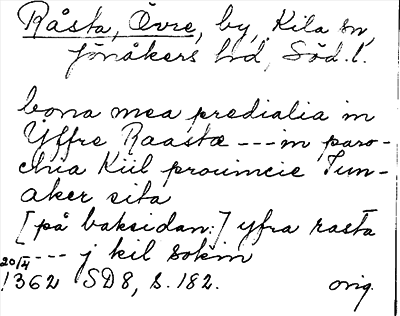 Råsta, Övre, by, Kila sn,
Jönåkers hd, Söd. l.
bona mea predialia in
Yffre Raastæ --- in paro-
chia Kiil prouincie Iun-
aker sita
[på baksidan:] yfra rasta
--- j kil sokin
20/4 1362 SD8, s. 182. orig.